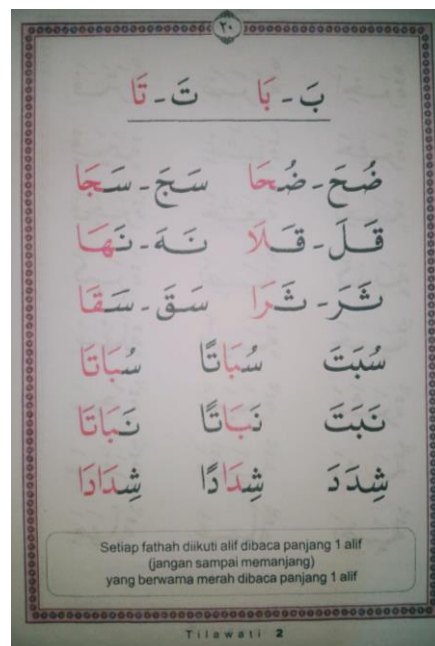 ٢٠
بَ - بَا تَ - تَا
ضُحَ - ضُحَا سَجَ - سَجَا
قَلَ - قَلَا نَهَ - نَهَا
ثَرَ - ثَرَا سَقَ - سَقَا
سُبَتَ سُبَاتًا سُبَاتَا
نَبَتَ نَبَاتًا نَبَاتَا
شِدَدَ شِدَادًا شِدَادَا
Setiap fathah diikuti alif dibaca panjang 1 alif
(jangan sampai memanjang)
yang berwarna merah dibaca panjang 1 alif
Tilawati 2